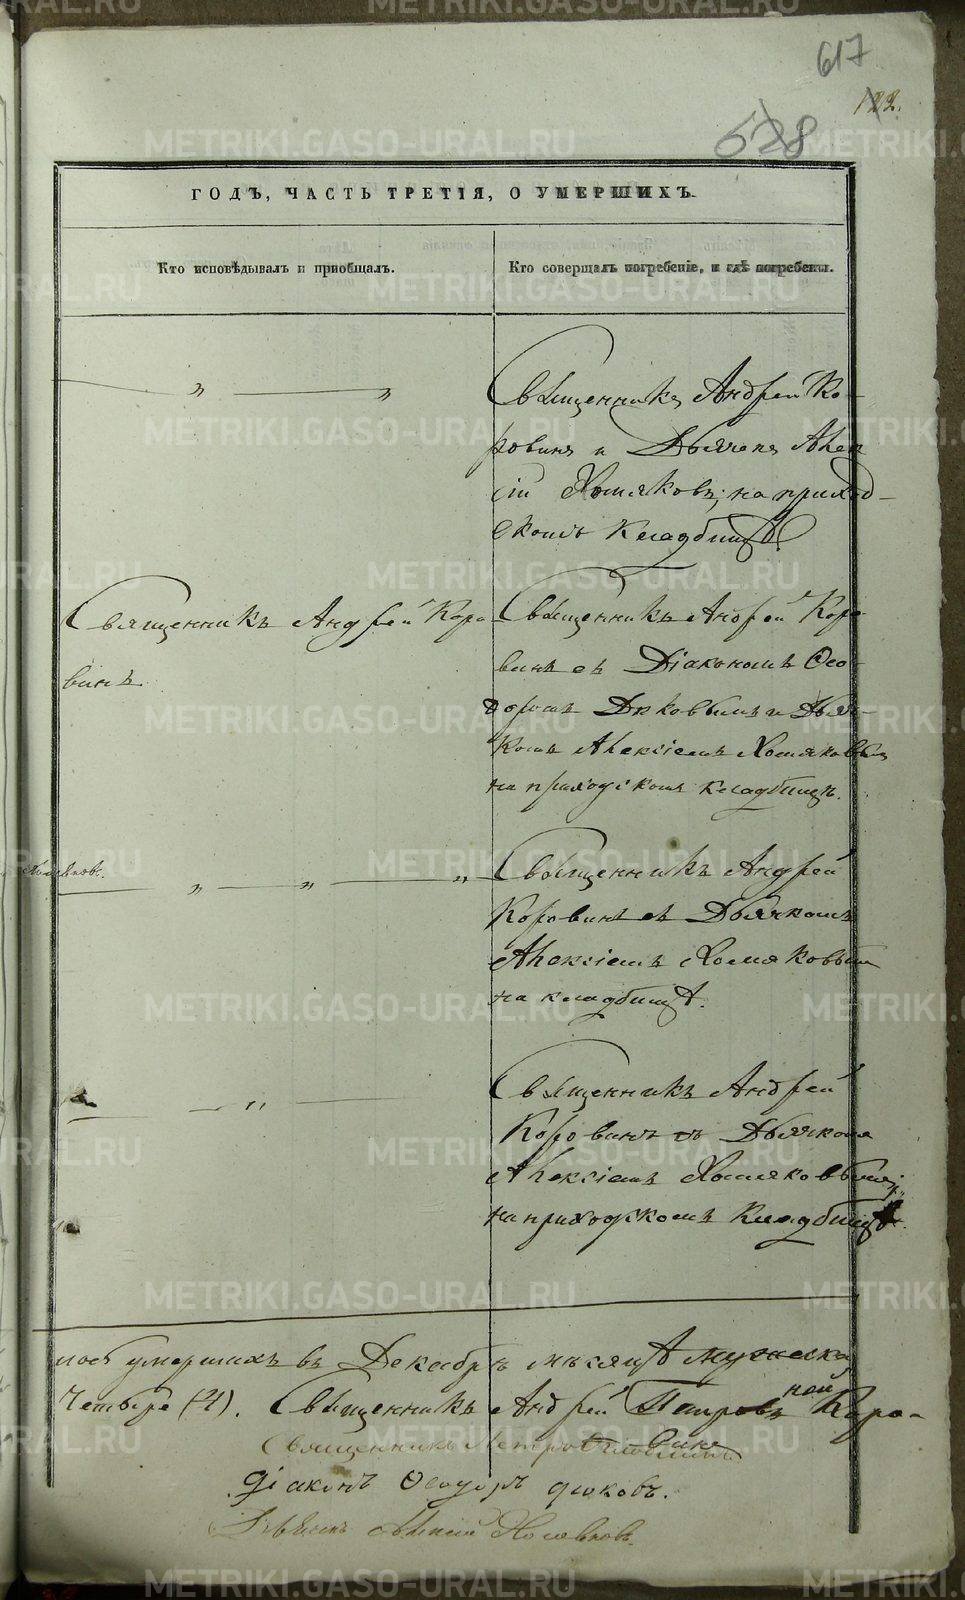 617
122.
528
ГОДЪ, ЧАСТЬ ТРЕТІЯ, О УМЕРШИХЪ.
Кто исповѣдывалъ и пріобщалъ.
Кто совершалъ погребеніе, и гдѣ погребены.
" "
Священникъ Андрей Ко-
ровинъ и Дьячекъ Алек
сій Хомяковъ; на приход-
скомъ кладбищѣ
Священникъ Андрей Коро-
винъ
Священникъ Андрей Коро-
винъ съ Діакономъ Ѳео-
доромъ Дюковымъ и Дьяч-
комъ Алексіемъ Хомяковымъ
на приходскомъ кладбищѣ.
Хомяковъ.
" " "
Священникъ Андрей
Коровинъ съ Дьячкомъ
Алексіемъ Хомяковымъ
на кладбищѣ.
"
Священникъ Андрей
Коровинъ съ Дьячкомъ
Алексіемъ Хомяковымъ;
на приходскомъ кладбищѣ.
умершихъ въ Декабрѣ мѣсяцѣ мужеска
Четыре (4). Священникъ Андрей Коро-
Священникъ Петръ
Діаконъ Ѳеодоръ Дюковъ.
Дьячекъ Алексій Хомяковъ.